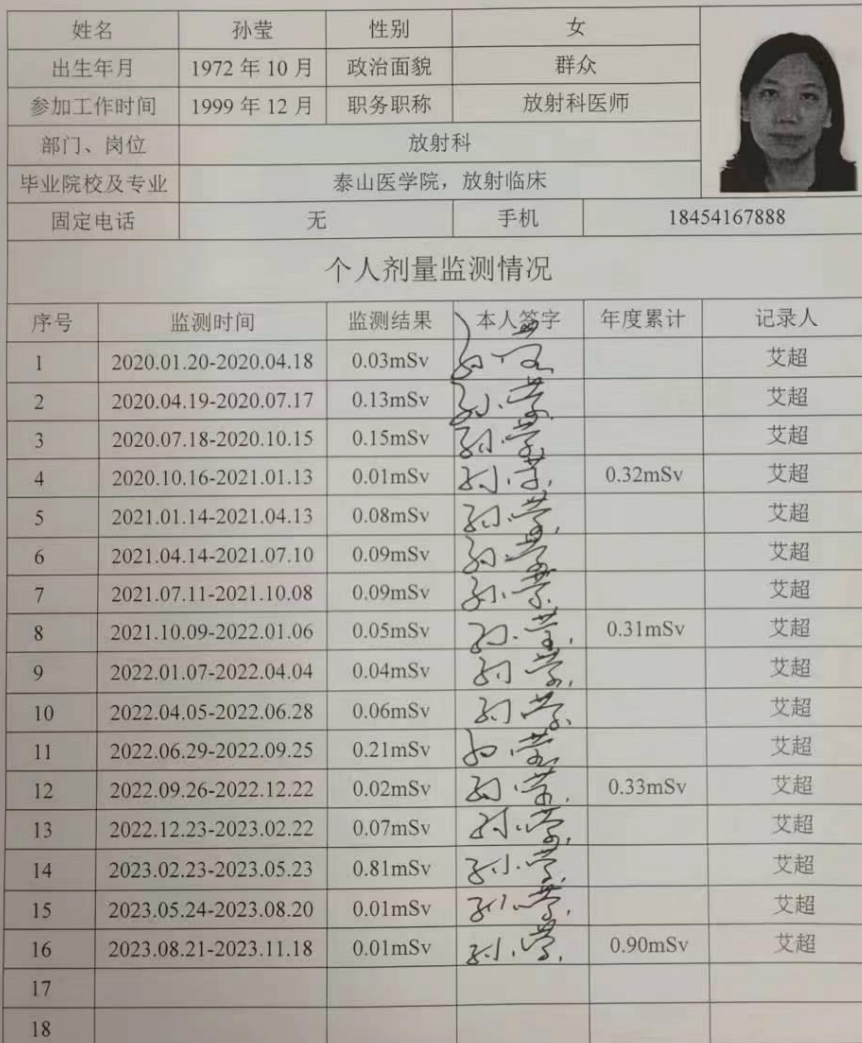 姓名 孙莹 性别 女
出生年月 1972 年 10 月 政治面貌 群众
参加工作时间 1999 年 12 月 职务职称 放射科医师
部门、岗位 放射科
毕业院校及专业 泰山医学院，放射临床
固定电话 无 手机 18454167888
个人剂量监测情况
序号 监测时间 监测结果 本人签字 年度累计 记录人
1 2020.01.20-2020.04.18 0.03mSv 孙莹 艾超
2 2020.04.19-2020.07.17 0.13mSv 孙莹 艾超
3 2020.07.18-2020.10.15 0.15mSv 孙莹 艾超
4 2020.10.16-2021.01.13 0.01mSv 孙莹 0.32mSv 艾超
5 2021.01.14-2021.04.13 0.08mSv 孙莹 艾超
6 2021.04.14-2021.07.10 0.09mSv 孙莹 艾超
7 2021.07.11-2021.10.08 0.09mSv 孙莹 艾超
8 2021.10.09-2022.01.06 0.05mSv 孙莹 0.31mSv 艾超
9 2022.01.07-2022.04.04 0.04mSv 孙莹 艾超
10 2022.04.05-2022.06.28 0.06mSv 孙莹 艾超
11 2022.06.29-2022.09.25 0.21mSv 孙莹 艾超
12 2022.09.26-2022.12.22 0.02mSv 孙莹 0.33mSv 艾超
13 2022.12.23-2023.02.22 0.07mSv 孙莹 艾超
14 2023.02.23-2023.05.23 0.81mSv 孙莹 艾超
15 2023.05.24-2023.08.20 0.01mSv 孙莹 艾超
16 2023.08.21-2023.11.18 0.01mSv 孙莹 0.90mSv 艾超
17
18